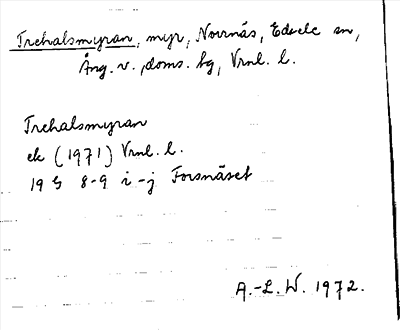 Trehalsmyran, myr, Norrnäs, Edsele sn,
Ång. v. doms. hg, Vrnl. l.
Trehalsmyran
ek (1971) Vrnl. l.
19 G 8-9 i-j Forsnäset
A.-L. W. 1972.